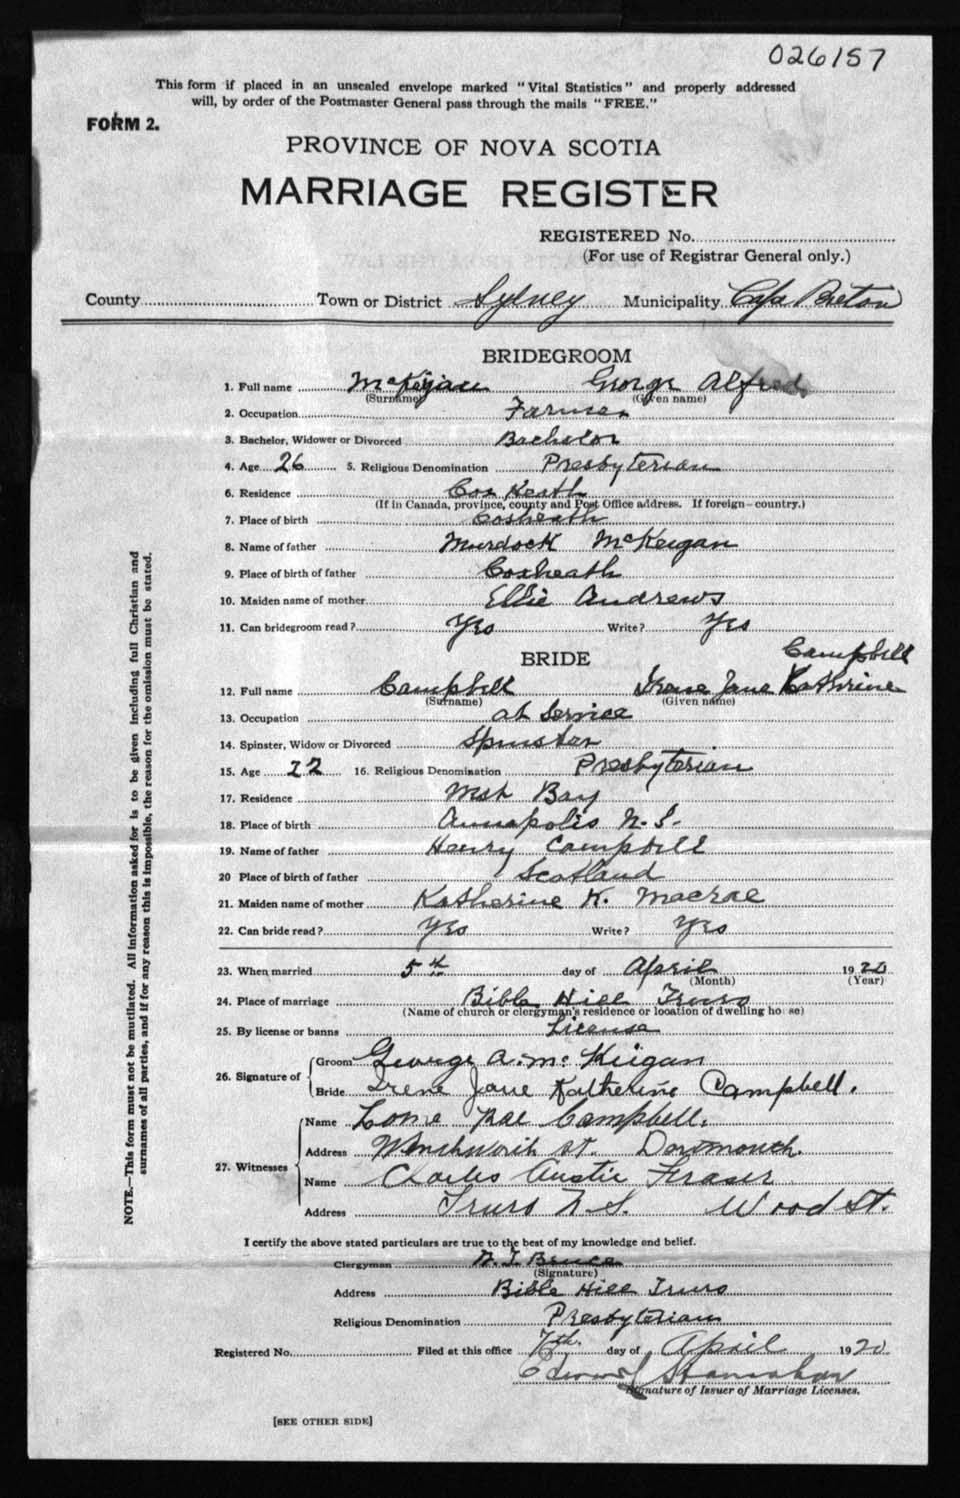 026157
This form if placed in an unsealed envelope marked "Vital Statistics" and properly addressed
will, by order of the Postmaster General pass through the mails "FREE."
FORM 2.
PROVINCE OF NOVA SCOTIA
MARRIAGE REGISTER
REGISTERED No.
(For use of Registrar General only.)
County Town or District Sydney Municipality Cape Breton
BRIDEGROOM
1. Full name McKeigan George Alfred
(Surname) (Given name)
2. Occupation Farmer
3. Bachelor, Widower or Divorced Bachelor
4. Age 26 5. Religious Denomination Presbyterian
6. Residence Cox Heath
(If in Canada, province, county and Post Office address. If foreign—country.)
7. Place of birth Coxheath
8. Name of father Murdock McKeigan
9. Place of birth of father Coxheath
10. Maiden name of mother Ellie Andrews
11. Can bridegroom read? Yes Write? Yes
BRIDE
Campbell
12. Full name Campbell Irene Jane Kathrine
(Surname) (Given name)
13. Occupation at Service
14. Spinster, Widow or Divorced Spinster
15. Age 22 16. Religious Denomination Presbyterian
17. Residence West Bay
18. Place of birth Annapolis N.S.
19. Name of father Henry Campbell
20 Place of birth of father Scotland
21. Maiden name of mother Katherine K. Macrae
22. Can bride read? Yes Write? Yes
23. When married 5th day of April 1920
(Month) (Year)
24. Place of marriage Bible Hill Truro
(Name of church or clergyman's residence or location of dwelling house)
25. By license or banns License
26. Signature of Groom George A. McKeigan
Bride Irene Jane Katherine Campbell.
27. Witnesses
Name Rae Campbell.
Address St. Dartmouth.
Name Charles Fraser
Address Truro N.S. Wood St.
I certify the above stated particulars are true to the best of my knowledge and belief.
Clergyman Bruce
(Signature)
Address Bible Hill Truro
Religious Denomination Presbyterian
Registered No. Filed at this office 7th. day of April 1920
Edward
Signature of Issuer of Marriage Licenses.
[SEE OTHER SIDE]
NOTE.—This form must not be mutilated. All information asked for is to be given including full Christian and
surnames of all parties, and if for any reason this is impossible, the reason for the omission must be stated.